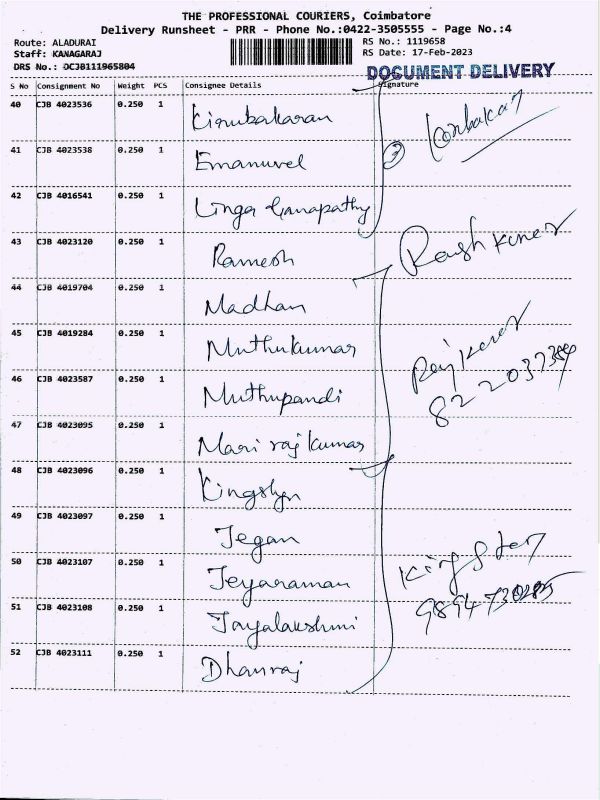 THE PROFESSIONAL COURIERS, Coimbatore
Delivery Runsheet - PRR - Phone No.:0422-3505555 - Page No.:4
Route: ALADURAI
RS No.: 1119658
Staff: KANAGARAJ
RS Date: 17-Feb-2023
DRS No.: DCJB111965804
DOCUMENT DELIVERY
S No Consignment No Weight PCS Consignee Details Signature
40 CJB 4023536 0.250 1 Kirubakaran
41 CJB 4023538 0.250 1 Emanuvel
3
42 CJB 4016541 0.250 1 Linga Ganapathy
43 CJB 4023120 0.250 1 Ramesh
44 CJB 4019704 0.250 1 Madhan
45 CJB 4019284 0.250 1 Muthukumar
46 CJB 4023587 0.250 1 Muthupandi
47 CJB 4023095 0.250 1 Mari raj kumar
48 CJB 4023096 0.250 1 Kingslyn
49 CJB 4023097 0.250 1 Jegan
50 CJB 4023107 0.250 1 Jeyaraman
51 CJB 4023108 0.250 1 Jayalakshmi
52 CJB 4023111 0.250 1 Dhanraj